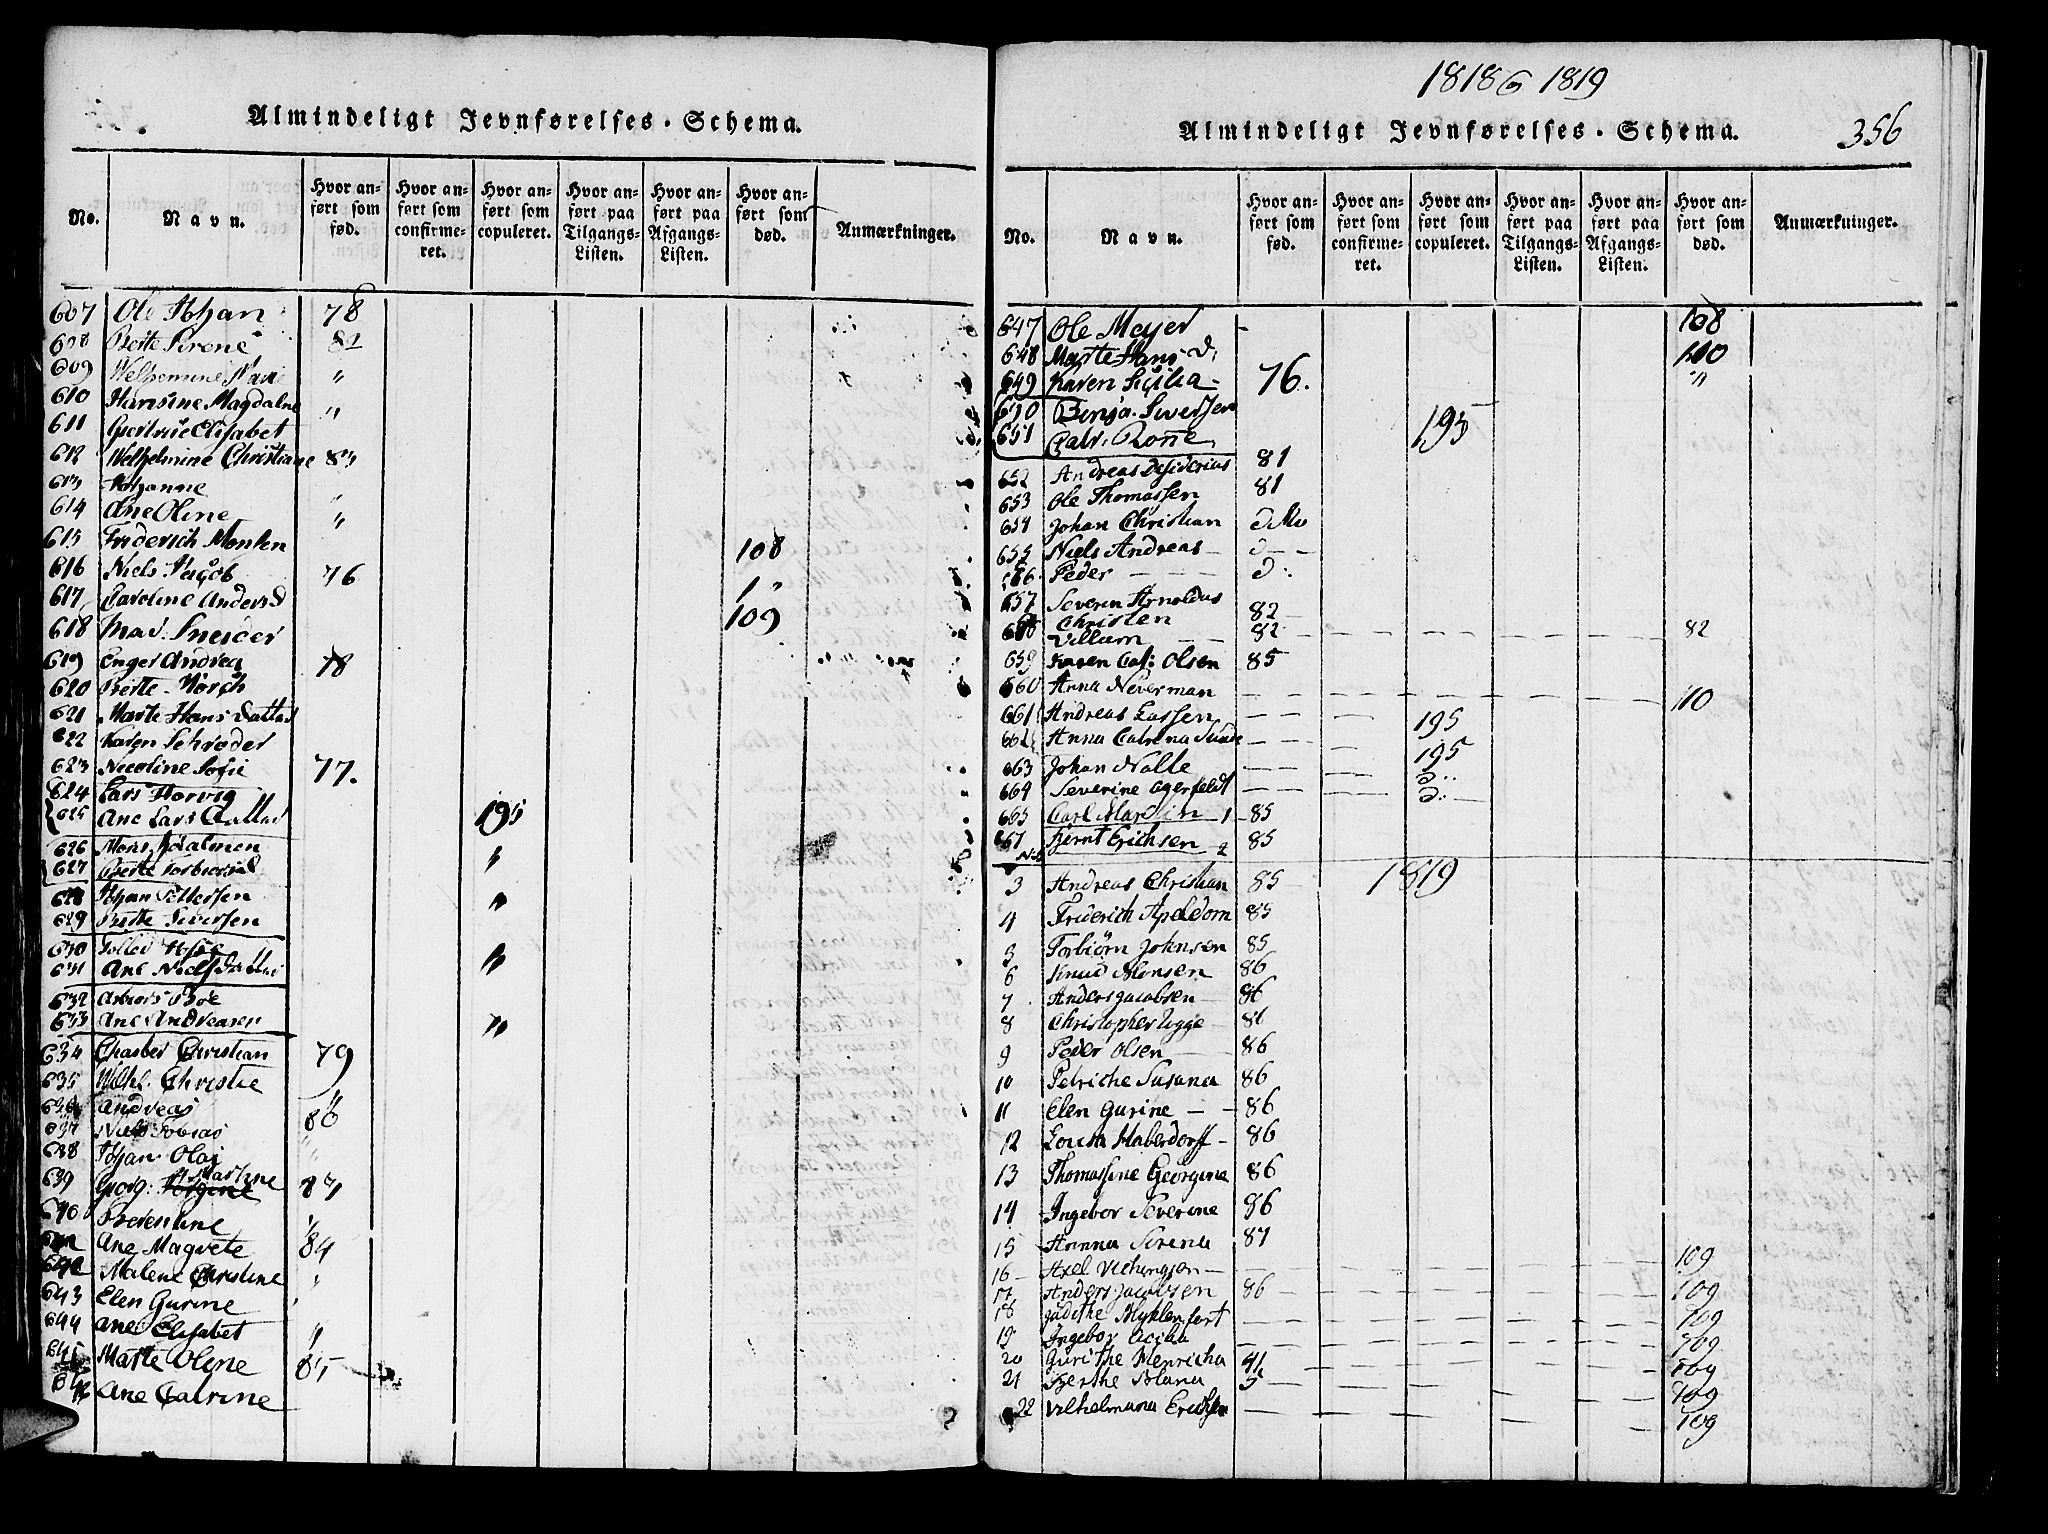 Almindeligt Jevnførelses-Schema.
No.
Navn.
Hvor anført som fød.
Hvor anført som confirmeret.
Hvor anført som copuleret.
Hvor anført paa Tilgangs-Listen.
Hvor anført paa Afgangs-Listen.
Hvor anført som død.
Anmærkninger.
607 Ole Johan 78
608 Berte Serene 81
609 Welhemine Marie "
610 Hansine Magdalne "
611 Giertrue Elisabet
612 Welhelmine Christiane 83
613 Johanne "
614 Ane Oline "
615 Friderich Monsen 108
616 Niels Jacob 76
617 Caroline Anders D 1 "
618 Mad. Sneider 109
619 Enger Andrea 78
620 Berte Mørch
621 Marte Hans Datter
622 Karen Schrøder
623 Nicoline Sofie 77.
624 Lars Horvig
625 Ane Lars Datter 195
626 Mons
627 Berte "
628 Johan Pettersen "
629 Berte Siversen
630 Tollev
631 Ane Niels Datter "
632
633 Ane Andreasen "
634 Christian 79
635 Wilh. Christie "
636 Andreas 80
637 Niels Tobias "
638 Johan Olai "
639 Georg: Martine 83
640
641 Ane Magrete 84
642 Malene Christine "
643 Elen Gurine "
644 Ane Elisabet "
645 Marte Oline 85
Ane Catrine
1818 & 1819
356
Almindeligt Jevnførelses-Schema.
No.
Navn.
Hvor anført som fød.
Hvor anført som confirmeret.
Hvor anført som copuleret.
Hvor anført paa Tilgangs-Listen.
Hvor anført paa Afgangs-Listen.
Hvor anført som død.
Anmærkninger.
647 Ole Meyer - 108
648 Marte Hans D: 110
649 Karen Sicilia - 76. "
650 Sivertsen
651 Catr. Rønne 195
652 Andreas Desiderius 81
653 Ole Thomassen 81
654 Johan Christian Dito
655 Niels Andreas - D - -
656 Peder - - - D:
657 Severin Arnoldus
Christen 82 -
658 Villum - - 82 - 82
659 Karen Cat: Olsen 85
660 Anna Neverman - 110
661 Andreas Lassen - 195
662 Anna Catrina - 195
663 Johan Nolte - D:
664 Severine Egerfeldt - D: -
665 Carl Mardin 1 - 85
67 Bernt Erichsen 2 85
1819
3 Andreas Christian 85
4 Friderich Apeldorn 85
5 Torbiørn Johnsen 85
6 Knud Monsen 86
7 Anders Jacobsen - 86
8 Christopher Tygge - 86
9 Peder Olsen - 86
10 Petriche Susana 86
11 Elen Gurine - - 86
12 Lovisa Haberdorff - 86
13 Thomassine Georgine 86
14 Ingebor Severine 86
15 Hanna Serena 87
16 - Axel - 109
17 Anders Jacobsen 86 - 109
18 Myklentort - 109
19 Ingebor - 109
20 Gurithe Henricha 41 - 109
21 Berthe Bolana 5 - 109
22 Vilhelmana Erichsen - 109